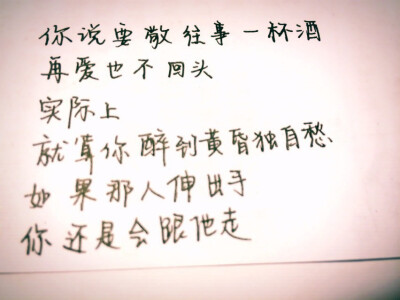 你说要敬往事一杯酒
再爱也不回头
实际上
就算你醉到黄昏独自愁
如果那人伸出手
你还是会跟他走